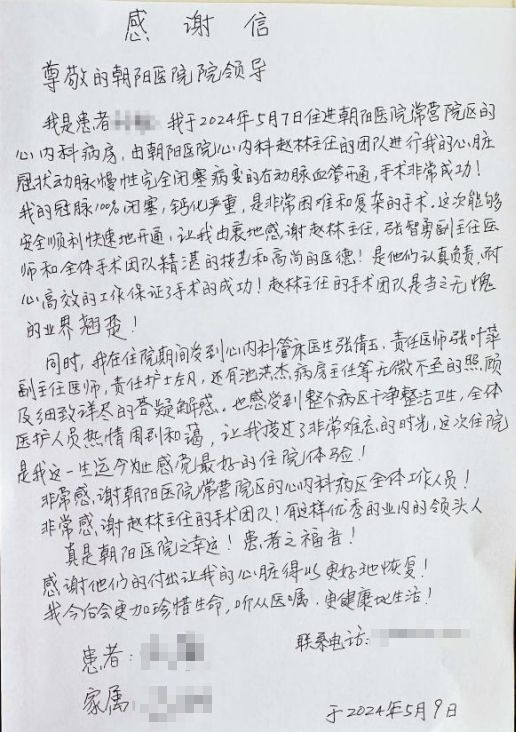 感谢信
尊敬的朝阳医院院领导
我是患者 我于2024年5月7日住进朝阳医院常营院区的
心内科病房，由朝阳医院心内科赵林主任的团队进行我的心脏
冠状动脉慢性完全闭塞病变的右动脉血管开通，手术非常成功！
我的冠脉100%闭塞，钙化严重，是非常困难和复杂的手术。这次能够
安全顺利快速地开通，让我由衷地感谢赵林主任，张智勇副主任医
师和全体手术团队精湛的技艺和高尚的医德！是他们认真负责、耐
心高效的工作保证了手术的成功！赵林主任的手术团队是当之无愧
的业界翘楚！
同时，我在住院期间受到心内科管床医生张倩玉、责任医师张叶萍
副主任医师，责任护士左凡，还有池洪杰病房主任等无微不至的照顾
及细致详尽的答疑解惑，也感受到整个病区干净整洁卫生，全体
医护人员热情周到和蔼，让我度过了非常难忘的时光，这次住院
是我这一生迄今为止感觉最好的住院体验！
非常感谢朝阳医院常营院区的心内科病区全体工作人员！
非常感谢赵林主任的手术团队！有这样优秀的业内的领头人
真是朝阳医院之幸运！患者之福音！
感谢他们的付出让我的心脏得以更好地恢复！
我今后会更加珍惜生命，听从医嘱，更健康地生活！
患者： 联系电话：
家属：
于2024年5月9日